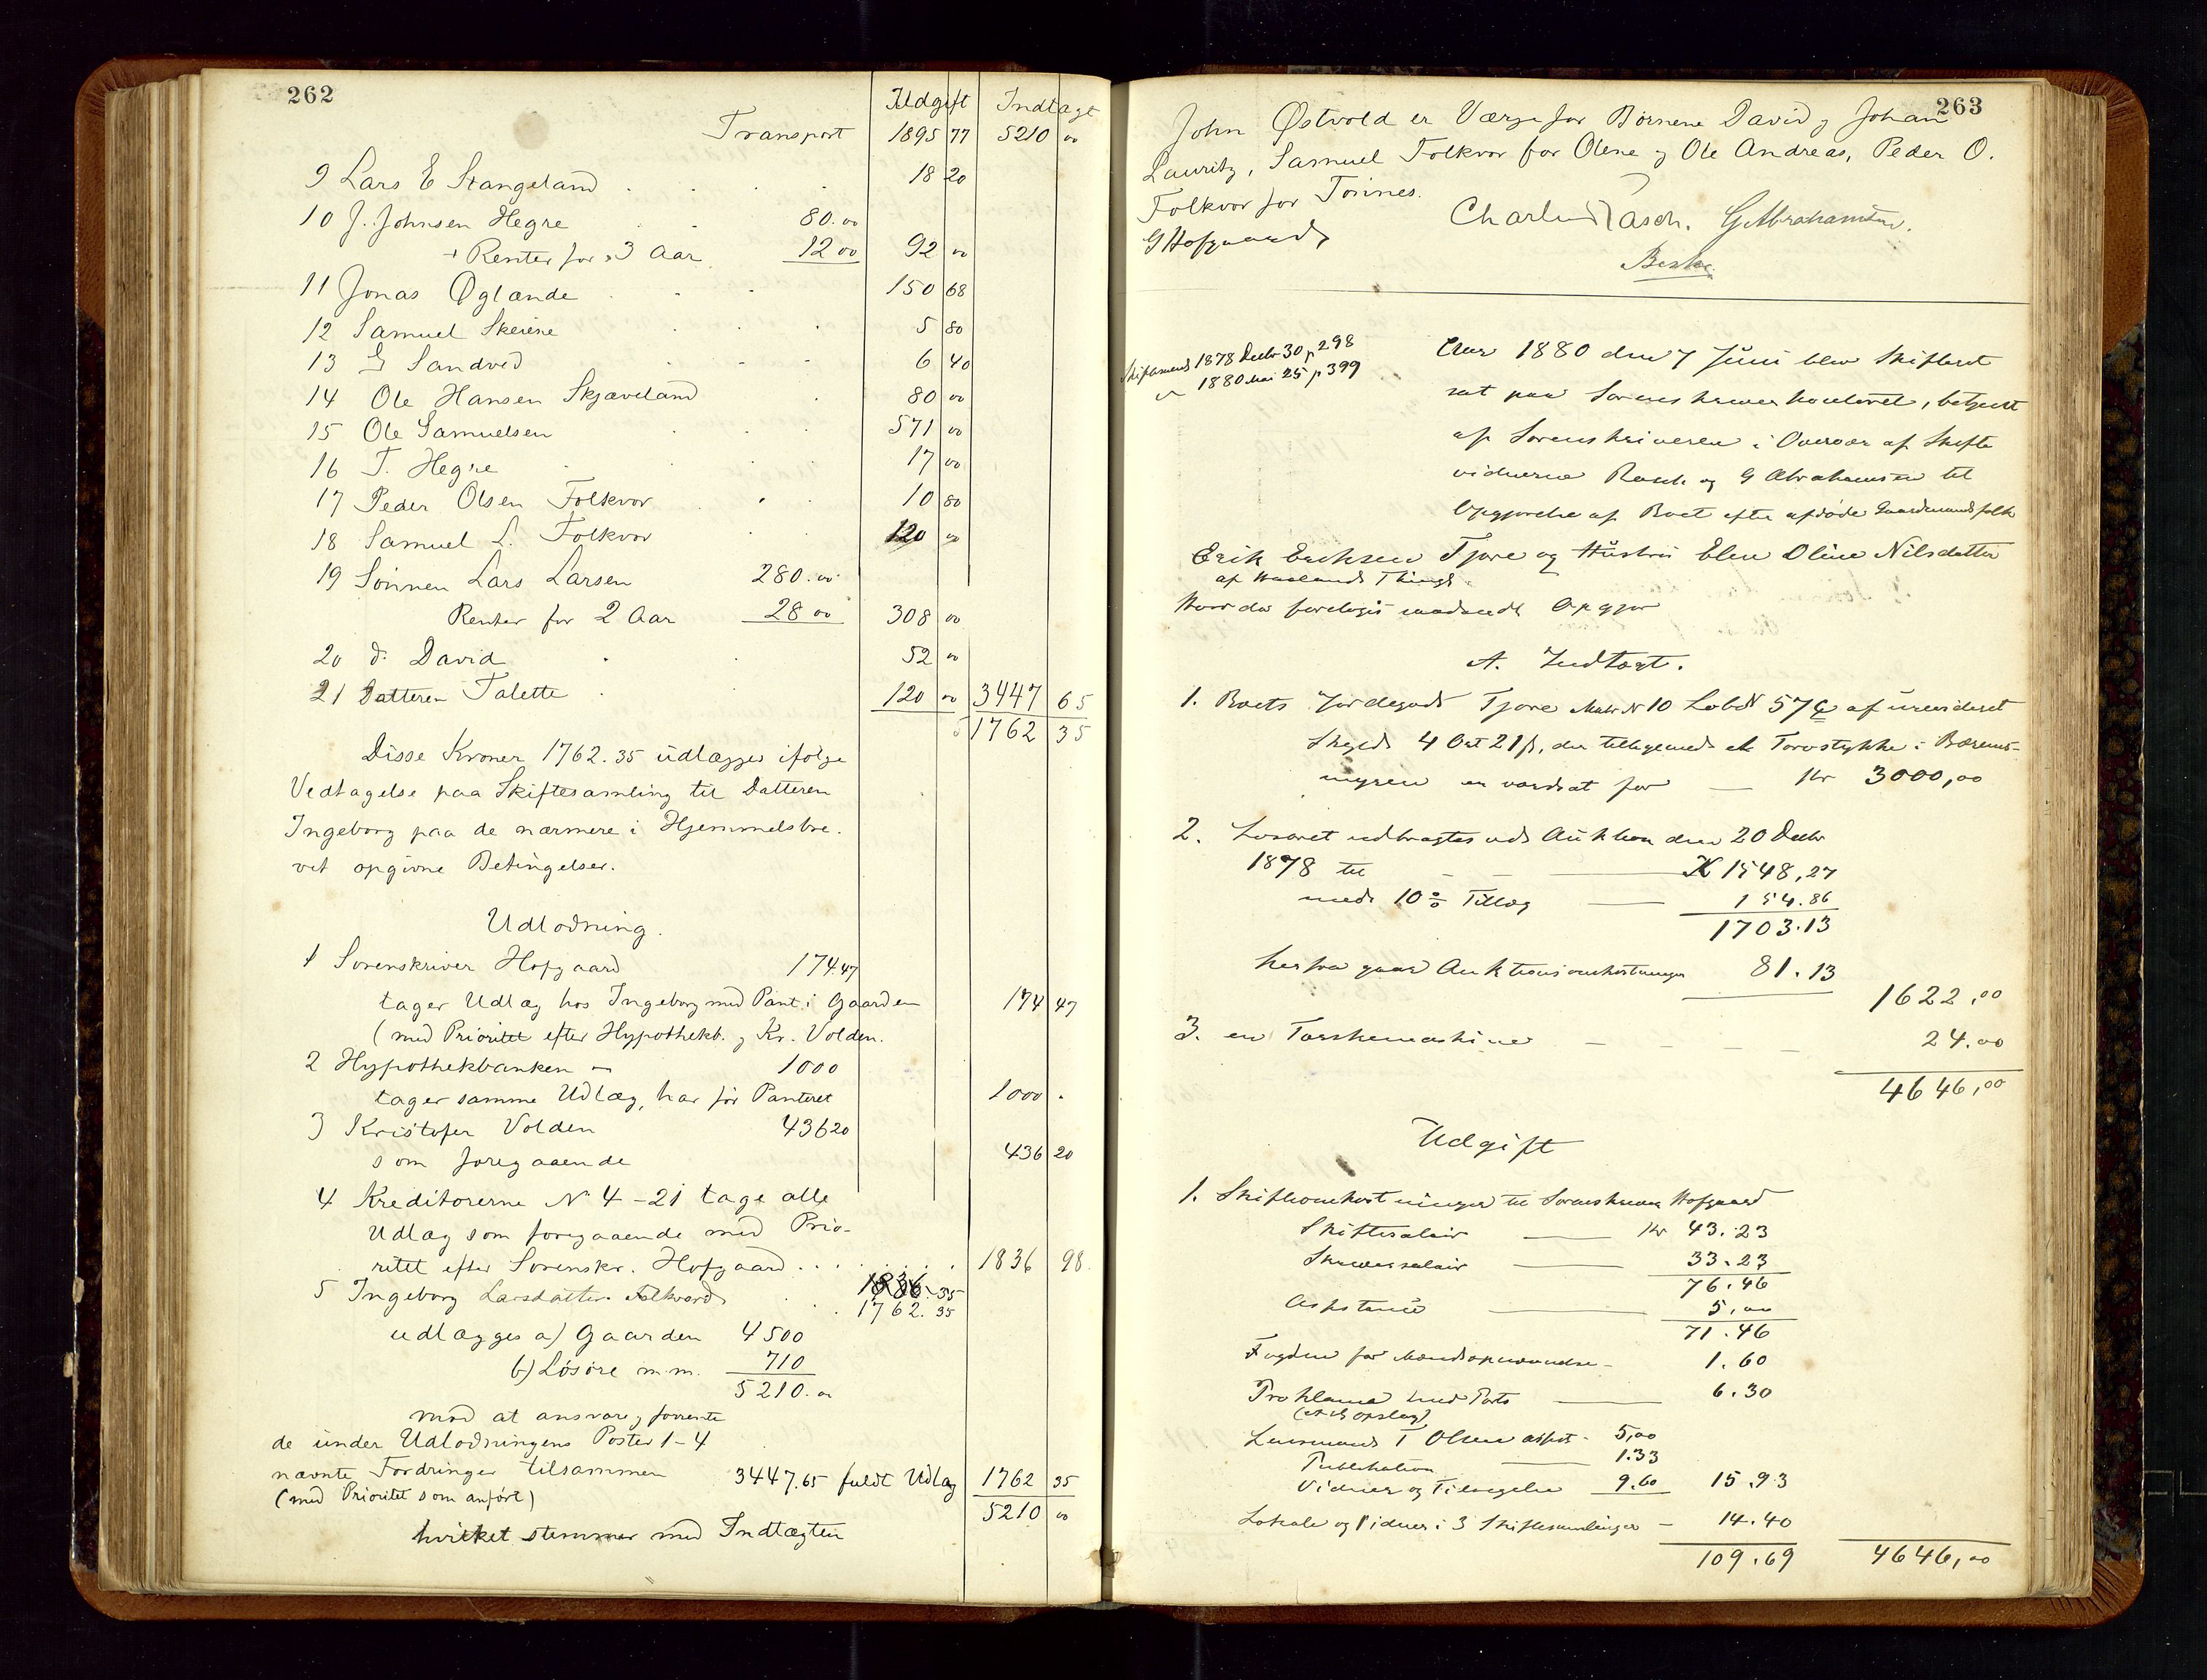 262
Udgift Indtægt
Transport 1895 77 5210 00
9 Lars E Stangeland . . . 18 20
10 J. Johnsen Hegre 80.00
+ Renter for 3 Aar 12 00 92 00
11 Jonas Øglænde . . . 150 68
12 Samuel Skeiene . . . 5 80
13 G Sandved . . . 6 40
14 Ole Hansen Skjæveland . 80 00
15 Ole Samuelsen . . . 571 00
16 T. Hegre . . . 17 00
17 Peder Olsen Folkvor . . 10 80
18 Samuel L. Folkvor . . 120 00
19 Sönnen Lars Larsen 280.00
Renter for 2 Aar 28 00 308 00
20 do David . . 52 00
21 Datteren Talette . . 120 00 3447 65
1762 35
Disse Kroner 1762.35 udlægges ifölge
Vedtagelse paa Skiftesamling til Datteren
Ingeborg paa de nærmere i Hjemmelsbre-
vet opgivne Betingelser.
Udlodning.
1 Sorenskriver Hofgaard 174.47
tager Udlæg hos Ingeborg med Pant i Gaarden 174 47
(med Prioritet efter Hypothekb. og Kr. Volden.
2 Hypothekbanken - 1000
tager samme Udlæg, har för Panteret 1000 .
3 Kristofer Volden 436 20
som foregaaende 436 20
4 Kreditorerne No 4-21 tage alle
Udlæg som foregaaende med Prio-
ritet efter Sorenskr. Hofgaard . . . 1836 98
5 Ingeborg Larsdatter Folkvord 1836.35
1762.35
udlægges a) Gaarden 4500
b) Lösöre m.m. 710
5210.00
mod at ansvare og forrente
de under Udlodningens Poster 1-4
nævnte Fordringer tilsammen 3447.65 fuldt Udlæg 1762 35
(med Prioritet som anfört) 5210 00
hvilket stemmer med Indtægten
263
John Østvold er Værge for Börnene David og Johan
Lauritz, Samuel Folkvor for Olene og Ole Andreas, Peder O.
Folkvor for Tönnes.
GHofgaard Charles Rasch. G Abrahamsen.
Skiftamend 1878 Decbr 30 p 298
" 1880 Mai 25 p 399
Aar 1880 den 7 Juni blev Skifteret
sat paa Sorenskriverkontoret, betjent
af Sorenskriveren i Overvær af Skifte
vidnerne Rasch og G Abrahamsen til
Opgjørelse af Boet efter afdøde Gaardmandsfolk
Erik Eriksen Tjore og Hustru Elen Oline Nilsdatter
af Haalands Thingl.
Hvor da forelagdes saadant Opgjør
A. Indtægt.
1. Boets Jordegods Tjore Matr No 10 Løb No 57c af urevideret
Skyld 4 Ort 21 ß, der tilligemed et Torvstykke i
myren er værdsat for — Kr 3000,00
2. Løsøret udbragtes ved Auktion den 20 Decbr
1878 til — — — K 1548,27
med 10 % Tillæg — 154.86
1703.13
herfra gaar Auktionsomkostninger 81.13
1622,00
3. en Tærskemaskine — — — — 24.00
4646,00
Udgift
1. Skifteomkostninger til Sorenskriver Hofgaard
Skiftesalair — Kr 43.23
Skriversalair — 33.23
76.46
— 5,00
71.46
Fogden for Mændsopnævnelse - 1.60
Proklama med Porto — 6.30
(og Opslag)
Lensmand T Olsen assist - 5,00
Publikation — 1.33
Vidner og Tilsigelse 9.60 15.93
Lokale og Vidner i 3 Skiftesamlinger - 14.40
109.69 4646,00